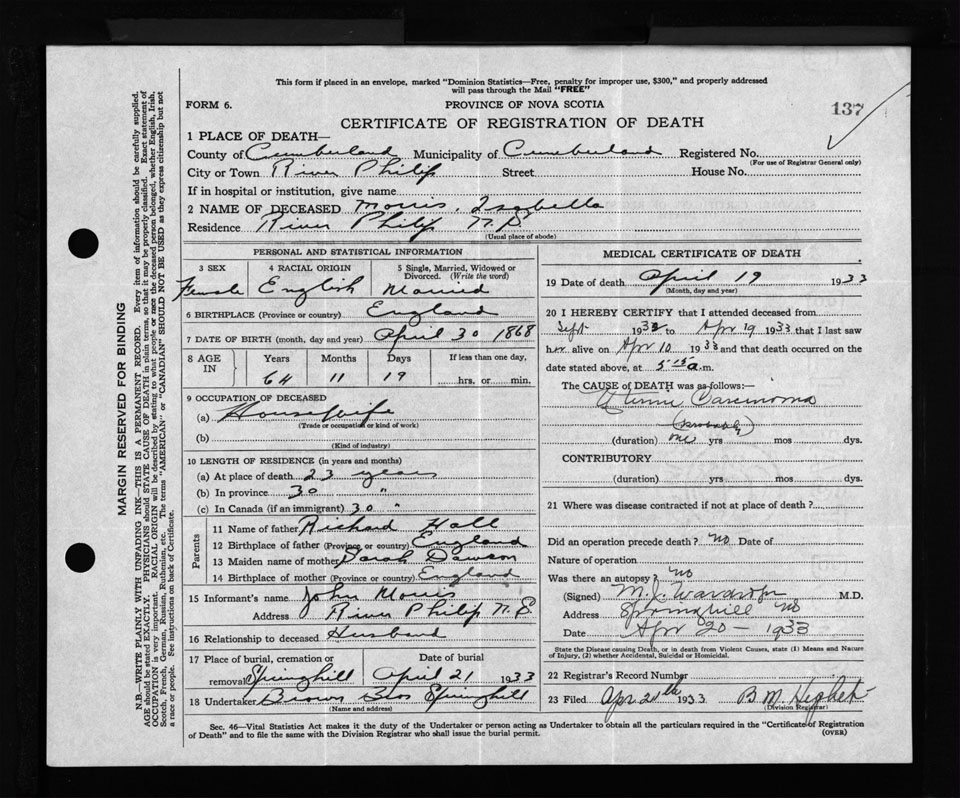 This form if placed in an envelope, marked "Dominion Statistics—Free, penalty for improper use, $300," and properly addressed
will pass through the Mail "FREE"
FORM 6. PROVINCE OF NOVA SCOTIA 137
CERTIFICATE OF REGISTRATION OF DEATH
1 PLACE OF DEATH—
County of Cumberland Municipality of Cumberland Registered No.
(For use of Registrar General only)
City or Town River Philip Street House No.
If in hospital or institution, give name
2 NAME OF DECEASED Morris, Isabella
Residence River Philip N.S.
(Usual place of abode)
PERSONAL AND STATISTICAL INFORMATION
3 SEX 4 RACIAL ORIGIN 5 Single, Married, Widowed or
Divorced. (Write the word)
Female English Married
6 BIRTHPLACE (Province or country) England
7 DATE OF BIRTH (month, day and year) April 30 1868
8 AGE IN Years Months Days If less than one day,
64 11 19 hrs. or min.
9 OCCUPATION OF DECEASED
(a) Housewife
(Trade or occupation or kind of work)
(b)
(Kind of industry)
10 LENGTH OF RESIDENCE (in years and months)
(a) At place of death 23 years
(b) In province 30 "
(c) In Canada (if an immigrant) 30 "
Parents
11 Name of father Richard Hall
12 Birthplace of father (Province or country) England
13 Maiden name of mother Sarah Dawson
14 Birthplace of mother (Province or country) England
15 Informant's name John Morris
Address River Philip N.S.
16 Relationship to deceased Husband
17 Place of burial, cremation or Date of burial
removal Springhill April 21 1933
18 Undertaker Brown Bros Springhill
(Name and address)
MEDICAL CERTIFICATE OF DEATH
19 Date of death April 19 1933
(Month, day and year)
20 I HEREBY CERTIFY that I attended deceased from
Sept 1932 to Apr 19 1933 that I last saw
her alive on Apr 10 1933 and that death occurred on the
date stated above, at 5.15 a.m.
The CAUSE of DEATH was as follows:—
Uterine Carcinoma
(probably)
(duration) one yrs mos dys.
CONTRIBUTORY
(duration) yrs mos dys.
21 Where was disease contracted if not at place of death?
Did an operation precede death? no Date of
Nature of operation
Was there an autopsy? no
(Signed) M.J. Wardrope M.D.
Address Springhill NS
Date Apr 20 — 1933
State the Disease causing Death, or in death from Violent Causes, state (1) Means and Nature
of Injury, (2) whether Accidental, Suicidal or Homicidal.
22 Registrar's Record Number
23 Filed Apr 20th 1933 B.M.
(Division Registrar)
Sec. 46—Vital Statistics Act makes it the duty of the Undertaker or person acting as Undertaker to obtain all the particulars required in the "Certificate of Registration
of Death" and to file the same with the Division Registrar who shall issue the burial permit. (OVER)
MARGIN RESERVED FOR BINDING
N.B.—WRITE PLAINLY WITH UNFADING INK—THIS IS A PERMANENT RECORD. Every item of information should be carefully supplied.
AGE should be stated EXACTLY. PHYSICIANS should STATE CAUSE OF DEATH in plain terms, so that it may be properly classified. Exact statement of
OCCUPATION is very important. RACIAL ORIGIN will be described by stating to what people or race the deceased person belonged, whether English, Irish,
Scotch, French, German, Russian, Ruthenian, etc. The terms "AMERICAN" or "CANADIAN" SHOULD NOT BE USED as they express citizenship but not
a race or people. See instructions on back of Certificate.